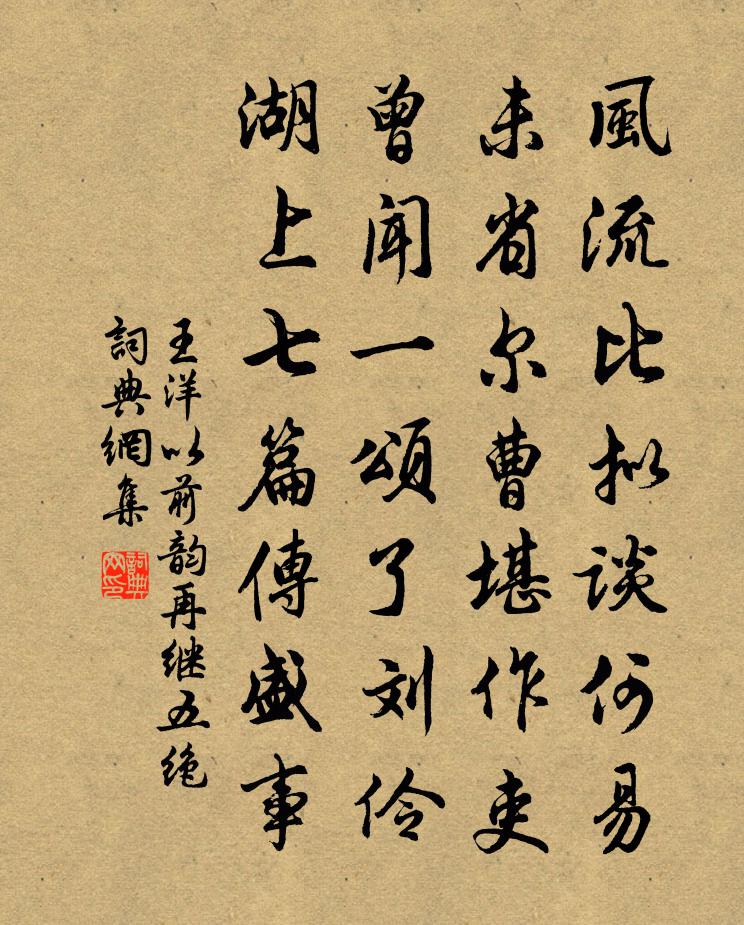 風流比拟談何易
未省尔曹堪作吏
曾闻一頌了刘伶
湖上七篇傳盛事
王洋以前韵再继五绝
詞典網集
詞典网印